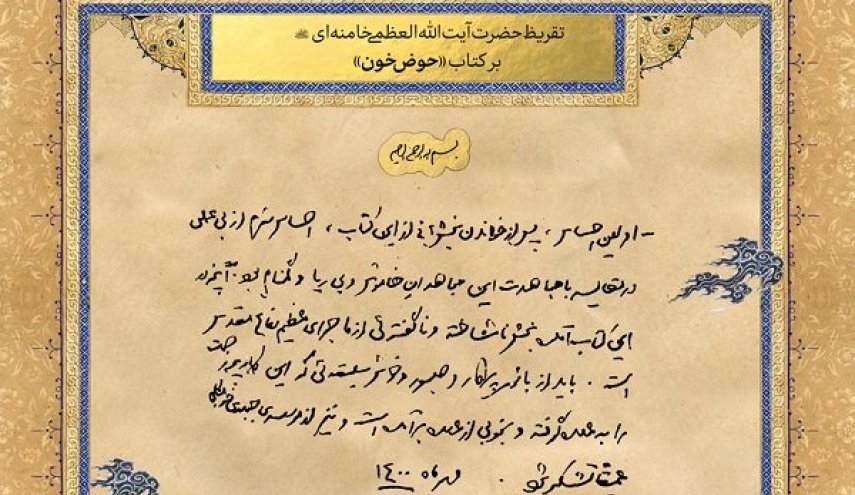 تقریظ حضرت آیت الله العظمی خامنه‌ای
بر کتاب «حوض خون»
بسم الله الرحمن الرحیم
- اولین احساس، پس از خواندن بخشهائی از این کتاب، احساس شرم از بی‌عملی
در مقایسه با مجاهدت این مجاهدان خاموش و بی‌ریا و گمنام بود. آنچه در
این کتاب آمده بخش ناشناخته و ناگفته‌ئی از ماجرای عظیم دفاع مقدس
است. باید از بانوی پرکار و صبور و خوش‌سلیقه‌ئی که این کار پرزحمت
را به عهده گرفته و بخوبی از عهده برآمده است و نیز از
عمیقاً تشکر شود. مهرماه ۱۴۰۰